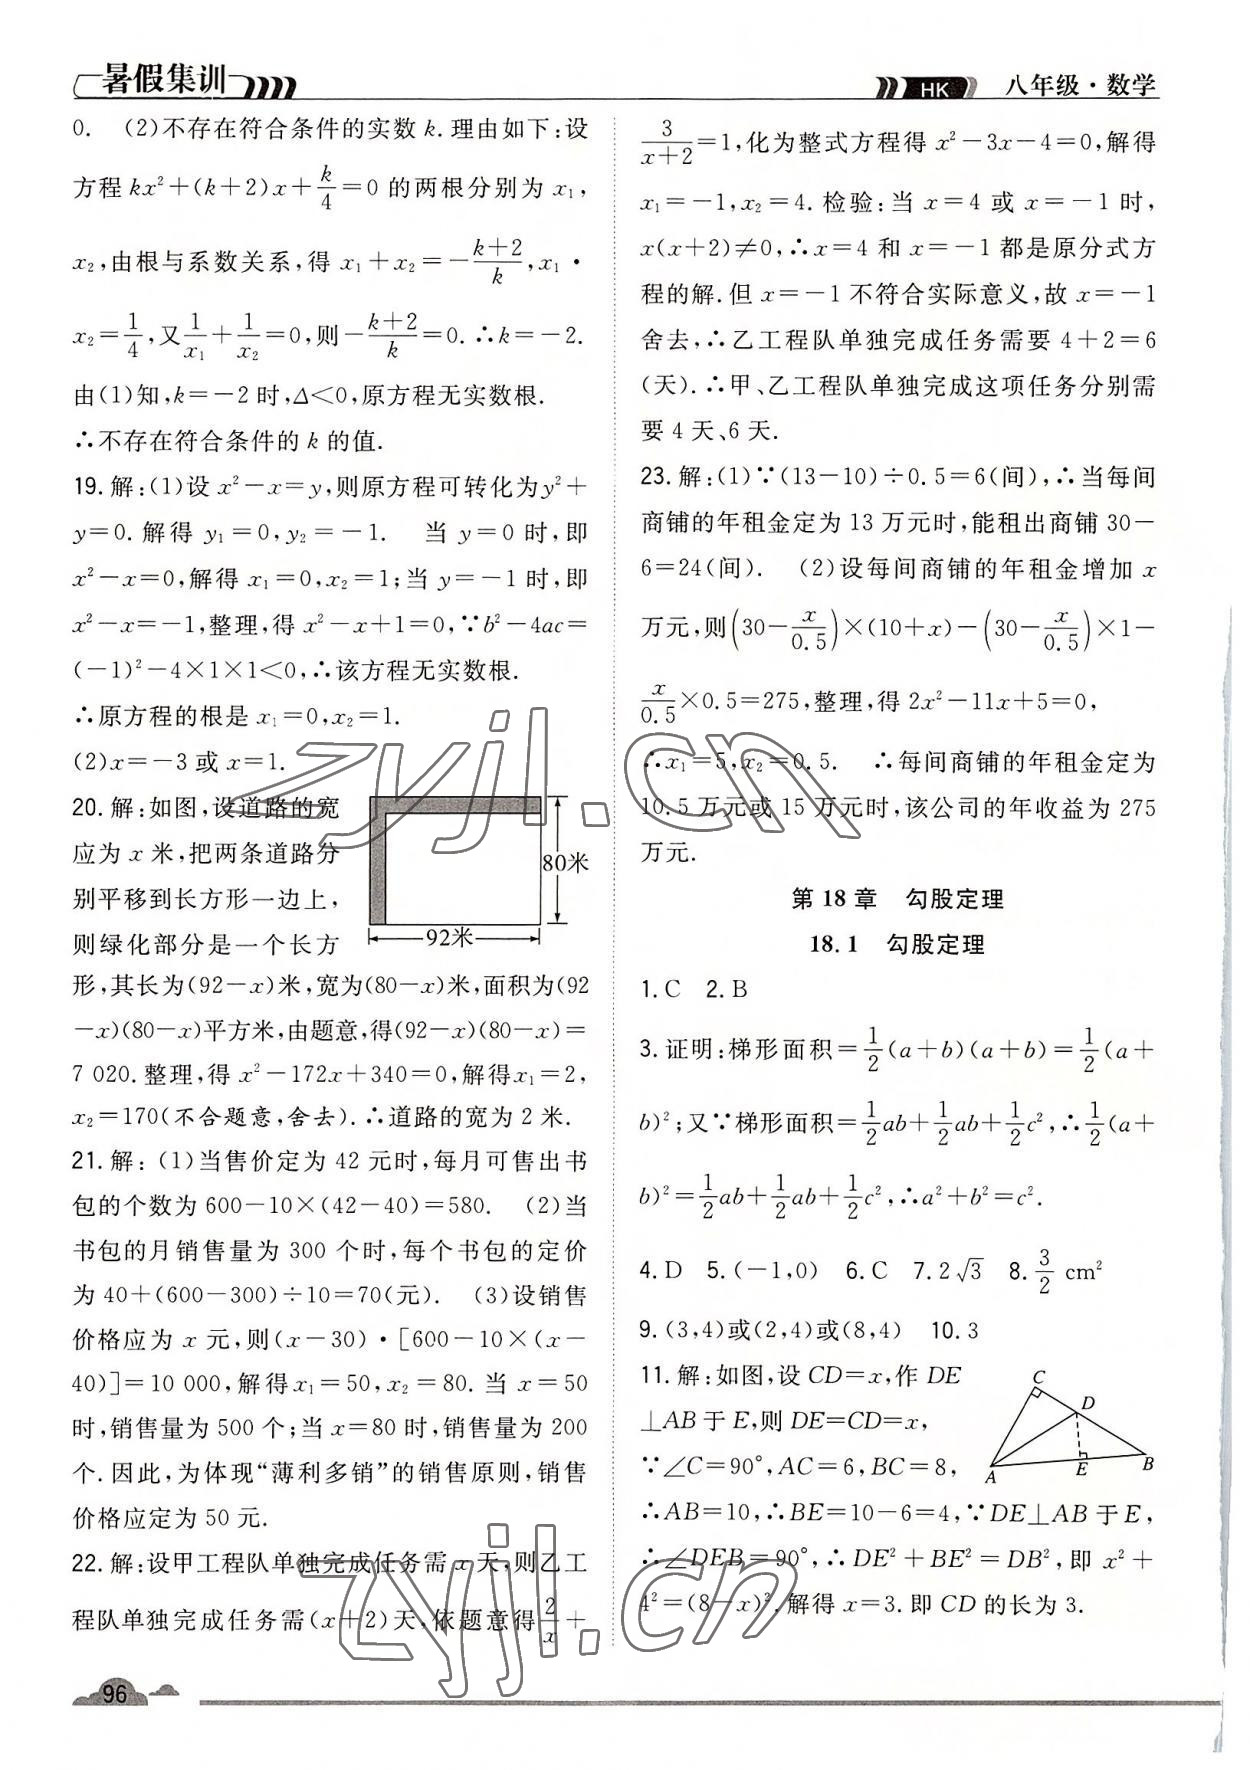 暑假集训
HK
八年级·数学
0. (2)不存在符合条件的实数 k. 理由如下:设
方程 kx²+(k+2)x+k/4=0 的两根分别为 x₁,
x₂,由根与系数关系,得 x₁+x₂=-(k+2)/k,x₁·
x₂=1/4,又1/x₁+1/x₂=0,则-(k+2)/k=0. ∴k=-2.
由(1)知,k=-2 时,Δ<0,原方程无实数根.
∴不存在符合条件的 k 的值.
19. 解:(1)设 x²-x=y,则原方程可转化为y²+
y=0. 解得 y₁=0,y₂=-1. 当 y=0 时,即
x²-x=0,解得 x₁=0,x₂=1;当 y=-1 时,即
x²-x=-1,整理,得 x²-x+1=0,∵b²-4ac=
(-1)²-4×1×1<0,∴该方程无实数根.
∴原方程的根是 x₁=0,x₂=1.
(2)x=-3 或 x=1.
20. 解:如图,设道路的宽
应为 x 米,把两条道路分
别平移到长方形一边上,
则绿化部分是一个长方
80米
92米
形,其长为(92-x)米,宽为(80-x)米,面积为(92
-x)(80-x)平方米,由题意,得(92-x)(80-x)=
7 020. 整理,得 x²-172x+340=0,解得x₁=2,
x₂=170(不合题意,舍去). ∴道路的宽为 2 米.
21. 解:(1)当售价定为 42 元时,每月可售出书
包的个数为 600-10×(42-40)=580. (2)当
书包的月销售量为 300 个时,每个书包的定价
为 40+(600-300)÷10=70(元). (3)设销售
价格应为 x 元,则(x-30)·[600-10×(x-
40)]=10 000,解得x₁=50,x₂=80. 当 x=50
时,销售量为 500 个;当 x=80 时,销售量为 200
个. 因此,为体现“薄利多销”的销售原则,销售
价格应定为 50 元.
22. 解:设甲工程队单独完成任务需 x 天,则乙工
程队单独完成任务需(x+2)天,依题意得2/x+
3/(x+2)=1,化为整式方程得 x²-3x-4=0,解得
x₁=-1,x₂=4. 检验:当 x=4 或 x=-1 时,
x(x+2)≠0,∴x=4 和 x=-1 都是原分式方
程的解. 但 x=-1 不符合实际意义,故 x=-1
舍去,∴乙工程队单独完成任务需要 4+2=6
(天). ∴甲、乙工程队单独完成这项任务分别需
要 4 天、6 天.
23. 解:(1)∵(13-10)÷0.5=6(间),∴当每间
商铺的年租金定为 13 万元时,能租出商铺 30-
6=24(间). (2)设每间商铺的年租金增加 x
万元,则(30-x/0.5)×(10+x)-(30-x/0.5)×1-
x/0.5×0.5=275,整理,得 2x²-11x+5=0,
∴x₁=5,x₂=0.5. ∴每间商铺的年租金定为
10.5 万元或 15 万元时,该公司的年收益为 275
万元.
第 18 章 勾股定理
18.1 勾股定理
1. C 2. B
3. 证明:梯形面积=1/2(a+b)(a+b)=1/2(a+
b)²;又∵梯形面积=1/2ab+1/2ab+1/2c²,∴1/2(a+
b)²=1/2ab+1/2ab+1/2c²,∴a²+b²=c².
4. D 5. (-1,0) 6. C 7. 2√3 8. 3/2 cm²
9. (3,4)或(2,4)或(8,4) 10. 3
11. 解:如图,设 CD=x,作 DE
⊥AB 于 E,则 DE=CD=x,
∵∠C=90°,AC=6,BC=8,
C
D
A
E
B
∴AB=10,∴BE=10-6=4,∵DE⊥AB 于 E,
∴∠DEB=90°,∴DE²+BE²=DB²,即 x²+
4²=(8-x)². 解得 x=3. 即 CD 的长为 3.
zyjl.cn
zyjl.cn
96